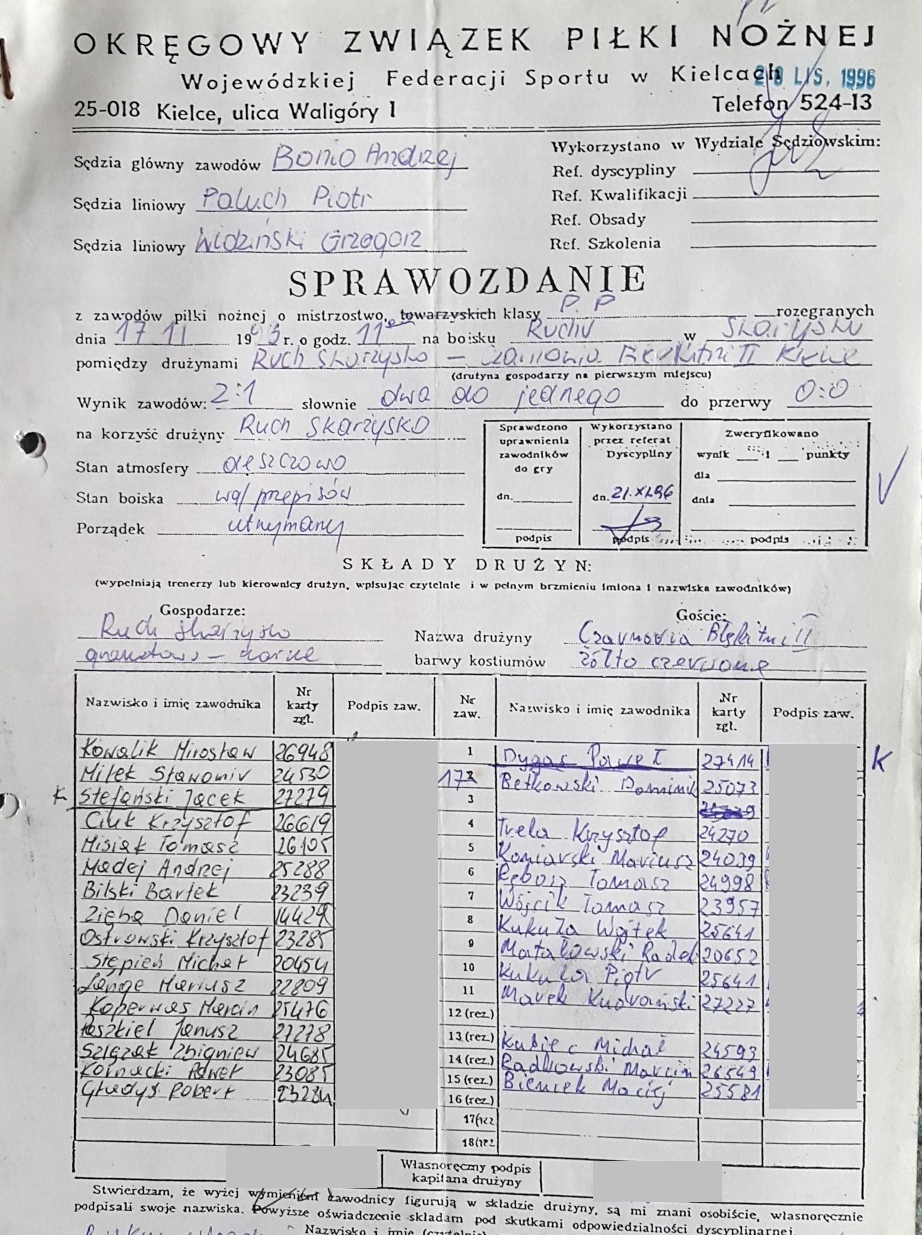 OKRĘGOWY ZWIĄZEK PIŁKI NOŻNEJ
Wojewódzkiej Federacji Sportu w Kielcach
28 LIS. 1996
25-018 Kielce, ulica Waligóry 1 Telefon 524-13
Sędzia główny zawodów Bonio Andrzej
Sędzia liniowy Paluch Piotr
Sędzia liniowy Widziński Grzegorz
Wykorzystano w Wydziale Sędziowskim:
Ref. dyscypliny
Ref. Kwalifikacji
Ref. Obsady
Ref. Szkolenia
SPRAWOZDANIE
z zawodów piłki nożnej o mistrzostwo, towarzyskich klasy P.P rozegranych
dnia 17 11 19 r. o godz. 11 na boisku Ruchu w Skarżysku
pomiędzy drużynami Ruch Skarżysko — Błękitni II Kielce
(drużyna gospodarzy na pierwszym miejscu)
Wynik zawodów: 2:1 słownie dwa do jednego do przerwy 0:0
na korzyść drużyny Ruch Skarżysko
Stan atmosfery deszczowo
Stan boiska wg/przepisów
Porządek utrzymany
Sprawdzono uprawnienia zawodników do gry
dn.
podpis
Wykorzystano przez referat Dyscypliny
dn. 21.XI.96
podpis
Zweryfikowano
wynik : punkty
dla
dnia
podpis
SKŁADY DRUŻYN:
(wypełniają trenerzy lub kierownicy drużyn, wpisując czytelnie i w pełnym brzmieniu imiona i nazwiska zawodników)
Gospodarze: Goście:
Ruch Skarżysko Nazwa drużyny Czarnovia Błękitni II
granatowo – czarne barwy kostiumów żółto czerwone
Nazwisko i imię zawodnika Nr karty zgł. Podpis zaw. Nr zaw. Nazwisko i imię zawodnika Nr karty zgł. Podpis zaw.
Kowalik Mirosław 26948 1 Dygas Paweł 27414 K
Miłek Sławomir 24530 172 Betkowski Dominik 25073
K Stefański Jacek 27279 3
Ciuk Krzysztof 26619 4 Trela Krzysztof 24270
Misiak Tomasz 26105 5 Koniarski Mariusz 24039
Madej Andrzej 25288 6 Rębosz Tomasz 24998
Bilski Bartek 23239 7 Wójcik Tomasz 23957
Zięba Daniel 14429 8 Kukuła Wojtek 25641
Ostrowski Krzysztof 23285 9 Matałowski Radek 20652
Stępień Michał 20454 10 Kukuła Piotr 25641
Lange Mariusz 22809 11 Marek Kudrański 27227
Kopernas Marcin 25476 12 (rez.)
Peszkiel Janusz 27278 13 (rez.) Kubiec Michał 24593
Szlązak Zbigniew 24685 14 (rez.) Radkowski Marcin 26549
Kolnacki Paweł 23085 15 (rez.) Bieniek Maciej 25581
Gładys Robert 23284 16 (rez.)
17 (rez
18 (rez
Własnoręczny podpis kapitana drużyny
Stwierdzam, że wyżej wymienieni zawodnicy figurują w składzie drużyny, są mi znani osobiście, własnoręcznie
podpisali swoje nazwiska. Powyższe oświadczenie składam pod skutkami odpowiedzialności dyscyplinarnej
Nazwisko i imię (czytelnie)